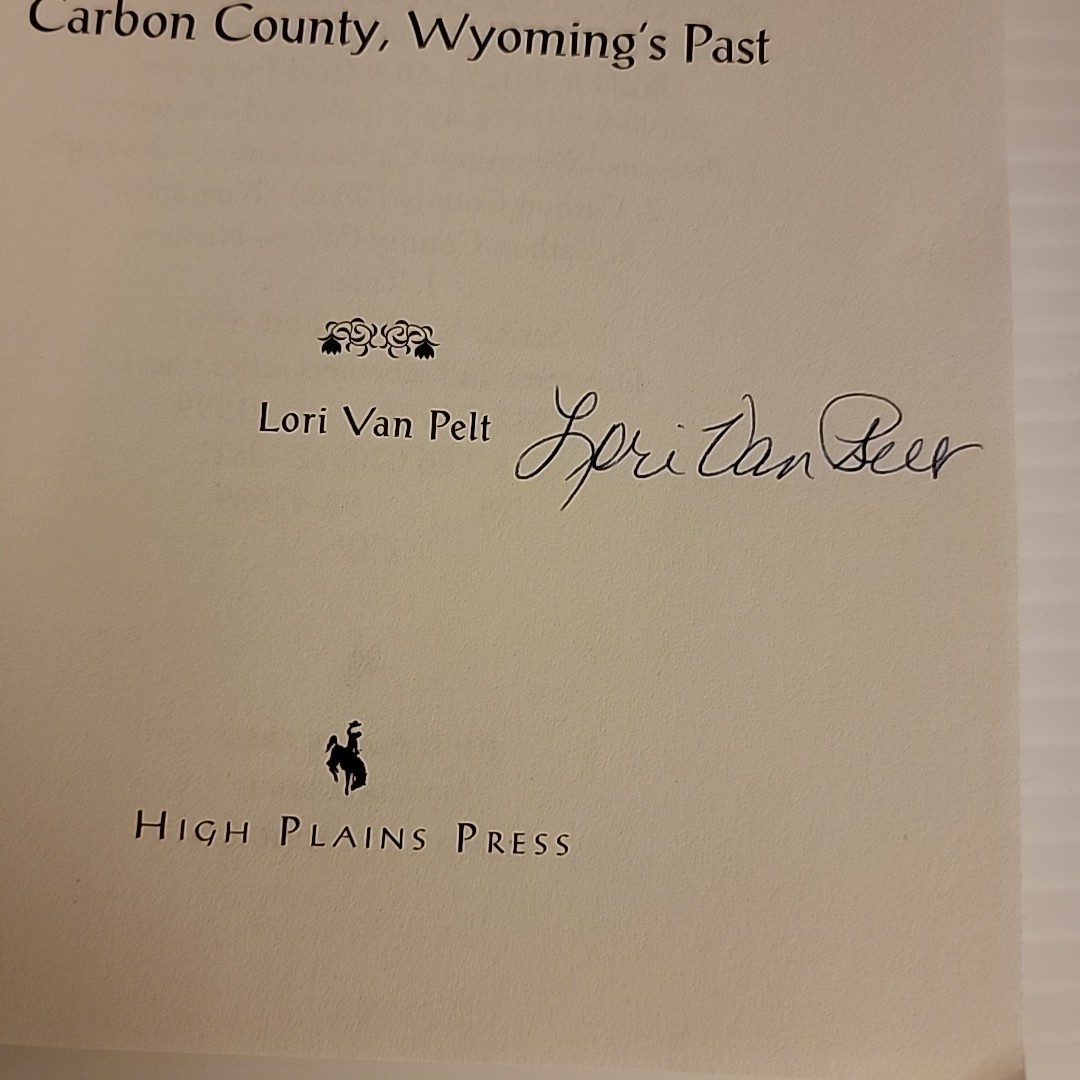 Carbon County, Wyoming's Past
Lori Van Pelt
Lori Van Pelt
HIGH PLAINS PRESS